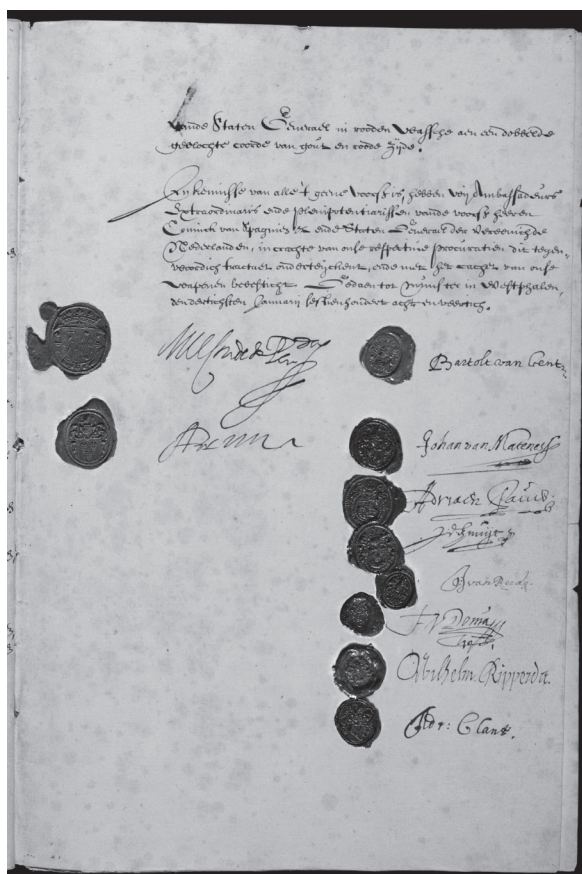 vande Staten Generael in rooden wassche aen een dobbelde
gevlochte coorde van gout en roode zijde.
In kennisse van alle 't geene voors. is, hebben wij Ambassadeurs
Extraordinaris ende plenipotentiarissen vande voors. heeren
Coninck van Spagnien & ende Staten Generael der Vereenichde
Nederlanden, in crachte van onse respective procuratien dit tegen-
woordich tractaet onderteijckent, ende met het cachet van onse
wapenen bevesticht. Gedaen tot Munster in Westphalen,
den dertichsten Januarij sesthienhondert acht en veertich.
Bartolt van Gent
Johan van Matenes
Adriaen Pauw
J. de Knuyt
G van Reede
F V Donia
Wilhelm Ripperda.
Adr: Clant.